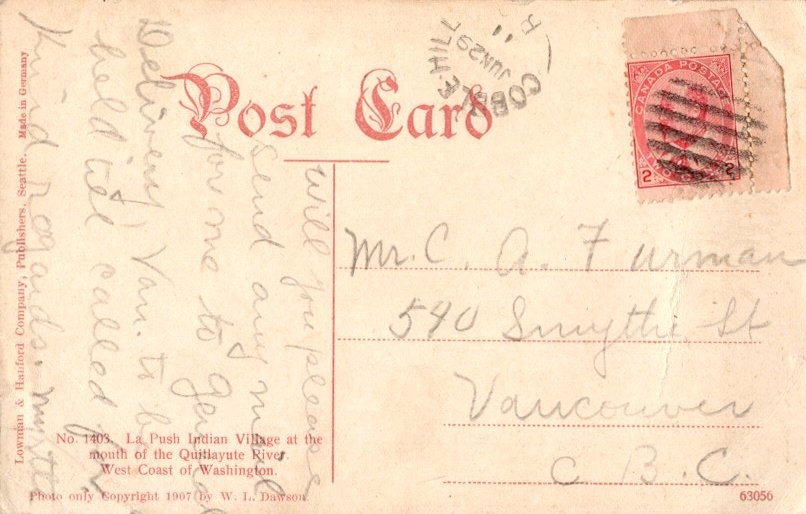 Post Card
COBBLE HILL
JUN 29
11
CANADA POSTAGE
2 2
Will you please
send any mail
for me to General
Delivery Van. to be
held till called for
Kind regards.
Mr. C. A. Furman
540 Smythe St
Vancouver
B.C.
No. 1403. La Push Indian Village at the
mouth of the Quillayute River
West Coast of Washington.
Photo only Copyright 1907 by W. L. Dawson
63056
Lowman & Hanford Company, Publishers, Seattle. Made in Germany